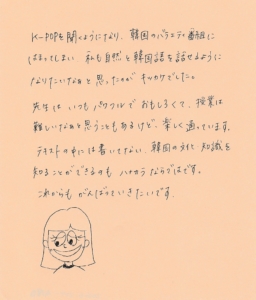 K-POPを聞くようになり、韓国のバラエティ番組に
はまってしまい 私も自然と韓国語を話せるように
なりたいなぁと思ったのがキッカケでした。
先生はいつもパワフルでおもしろくて、授業は
難しいなぁと思うこともあるけど、楽しく通っています。
テキストの中には書いてない、韓国の文化・知識を
知ることができるのも ハナカラならではです。
これからも がんばっていきたいです。